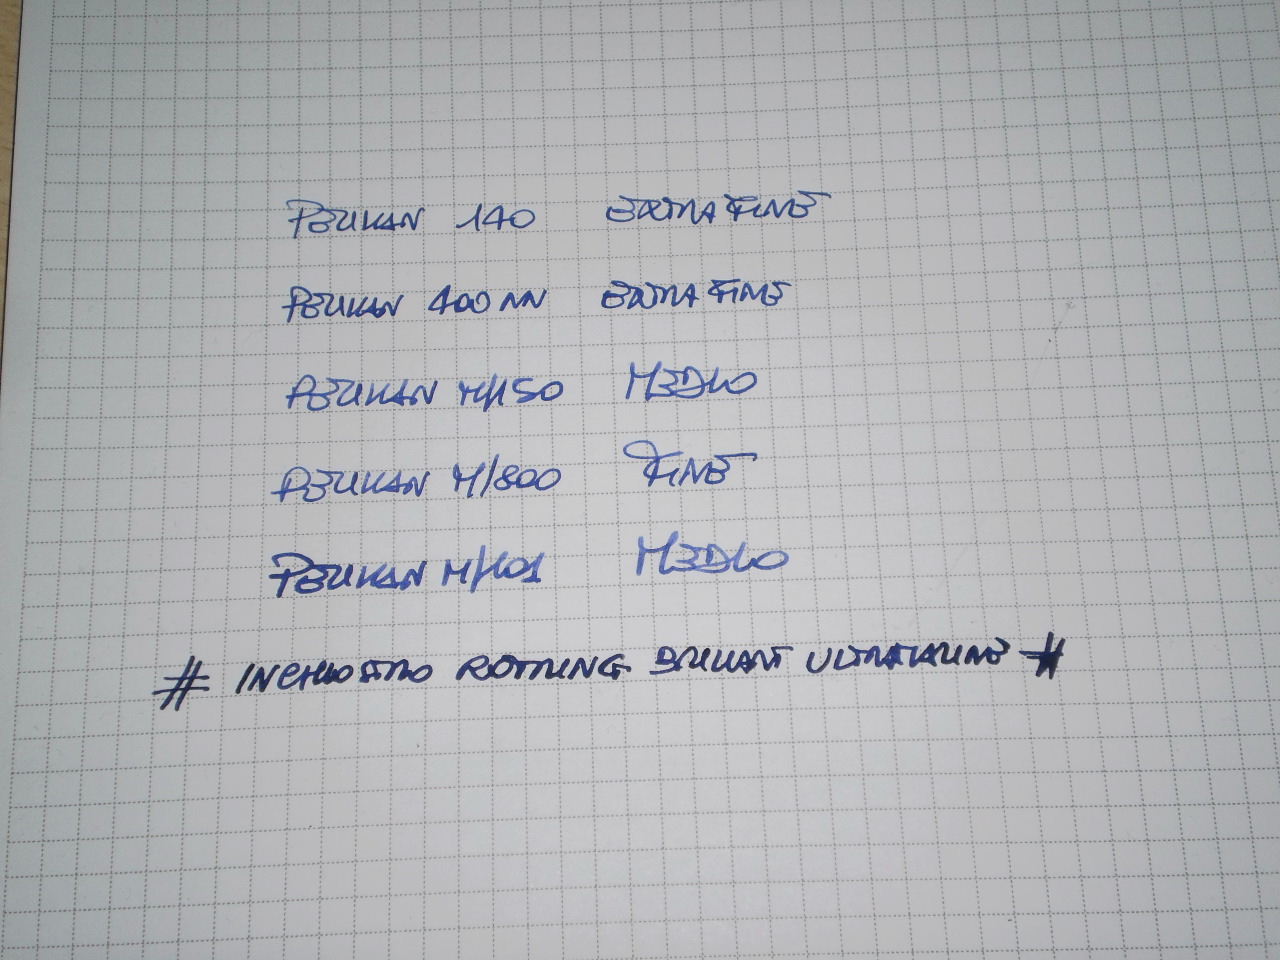 PELIKAN 140 EXTRA FINE
PELIKAN 400 NN EXTRA FINE
PELIKAN M/150 MEDIO
PELIKAN M/800 FINE
PELIKAN M/101 MEDIO
# INCHIOSTRO ROTRING BRILLIANT ULTRAMARINE #